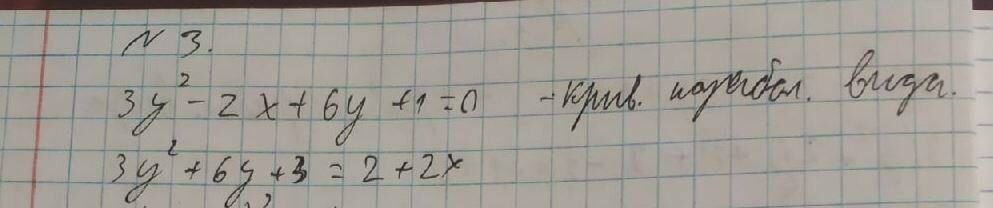 N 3.
3y² - 2x + 6y + 1 = 0 - крив. парабол. вида.
3y² + 6y + 3 = 2 + 2x